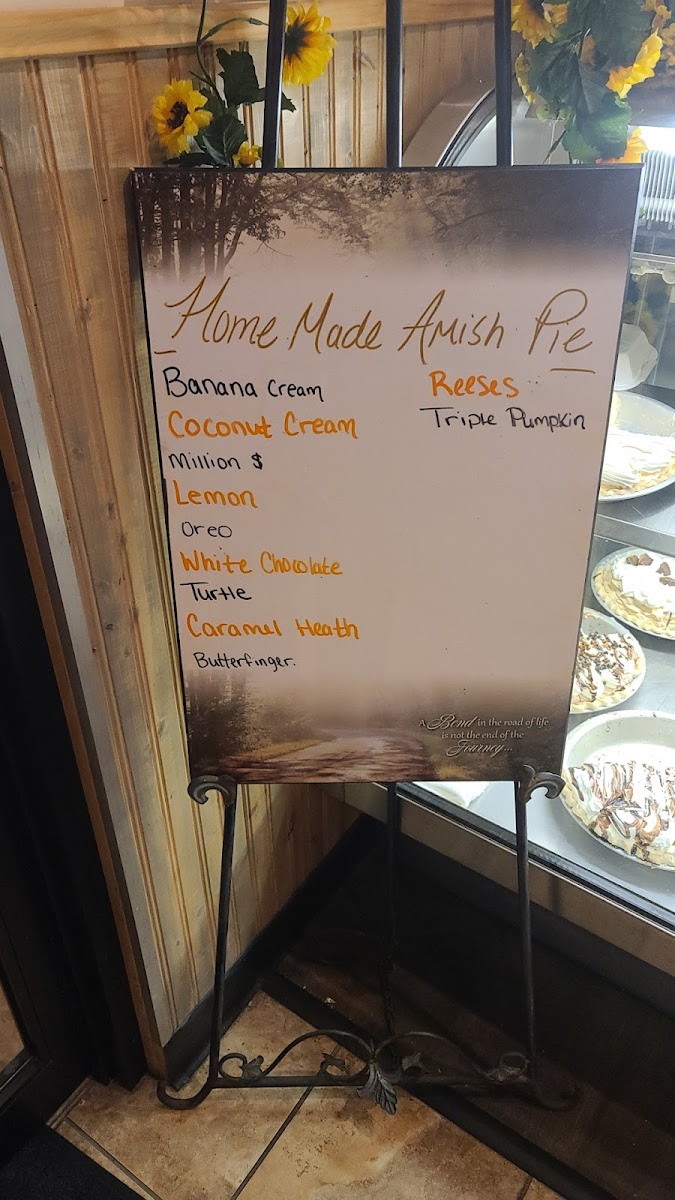 Home Made Amish Pie
Banana Cream
Coconut Cream
Million $
Lemon
Oreo
White Chocolate
Turtle
Caramel Heath
Butterfinger.
Reeses
Triple Pumpkin
A Bend in the road of life
is not the end of the
Journey...